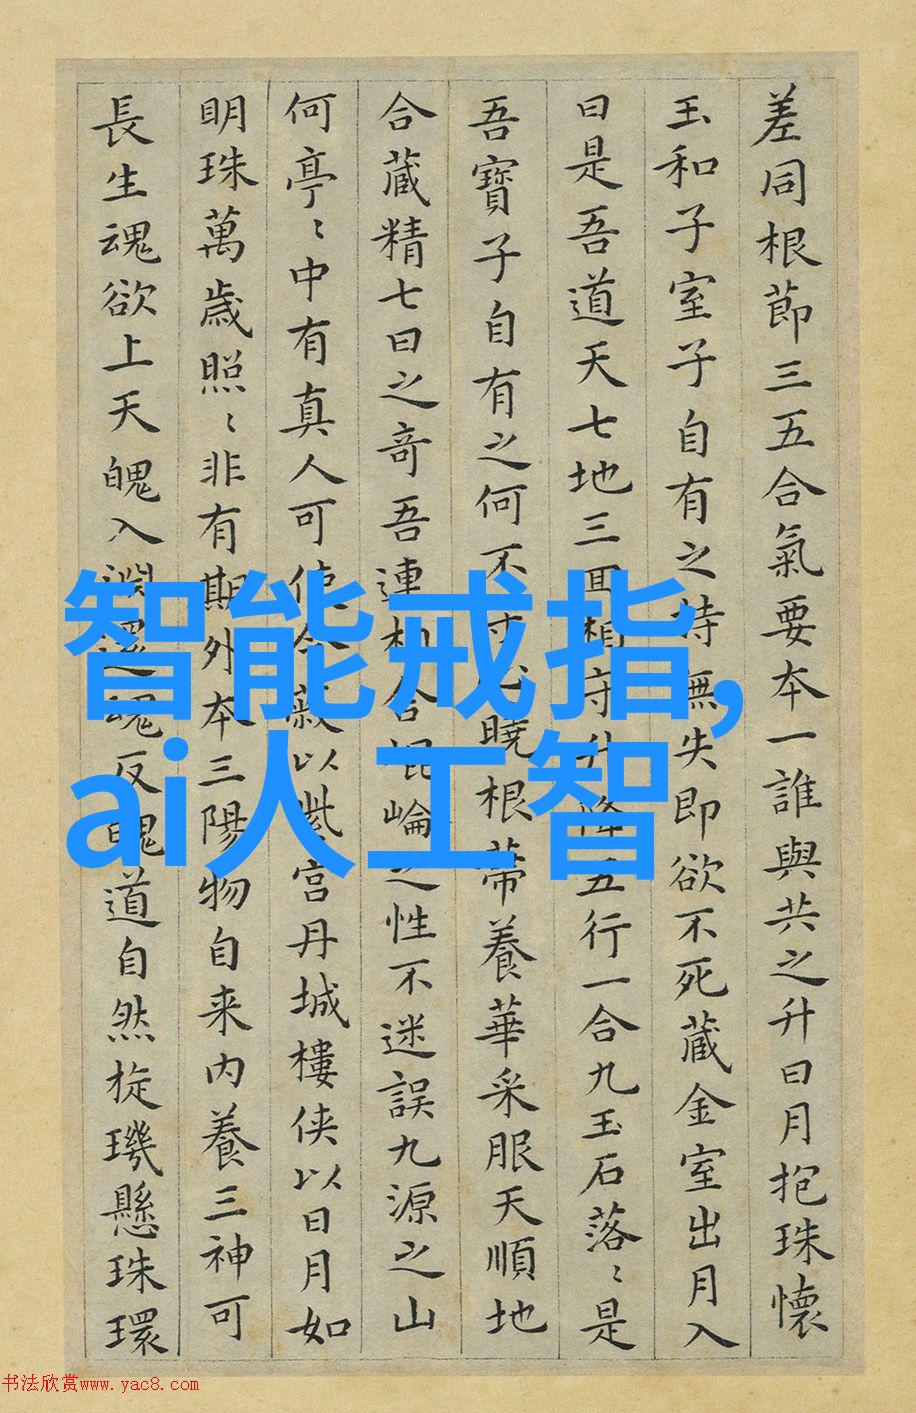 差同根節三五合氣要本一誰與共之升日月抱珠懷
玉和子室子自有之持無失即欲不死藏金室出月入
日是吾道天七地三囬相守升降五行一合九玉石落〻是
吾寶子自有之何不守曉根蒂養華采服天順地
合藏精七日之奇吾連相合崐崘之性不迷誤九源之山
何亭〻中有真人可使令蔽以紫宮丹城樓侠以日月如
明珠萬歲照〻非有期外本三陽物自来内養三神可
長生魂欲上天魄入淵還魂反魄道自然旋璣懸珠環
智能戒指,
ai人工智
书法欣赏www.yac8.com